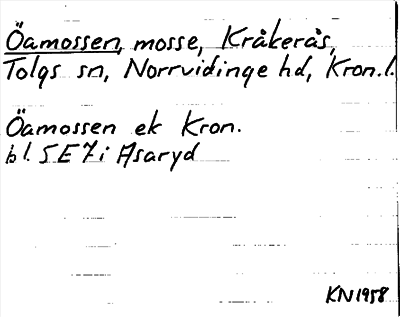 Öamossen, mosse, Kråkerås,
Tolgs sn, Norrvidinge hd, Kron.l.
Öamossen ek Kron.
bl. 5E7i Asaryd
KN 1958